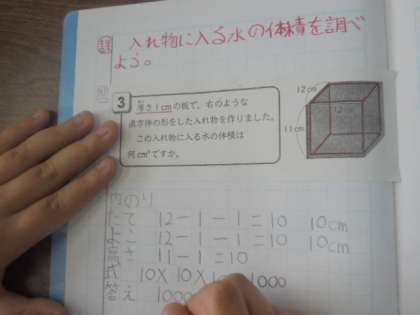 課 入れ物に入る水の体積を調べ
よう。
3 厚さ1cmの板で、右のような
直方体の形をした入れ物を作りました。
この入れ物に入る水の体積は
何cm³ですか。
12cm
12
11cm
内のり
たて 12－1－1＝10 10cm
よこ 12－1－1＝10 10cm
高さ 11－1＝10
式 10×10×10 1000
答え 1000